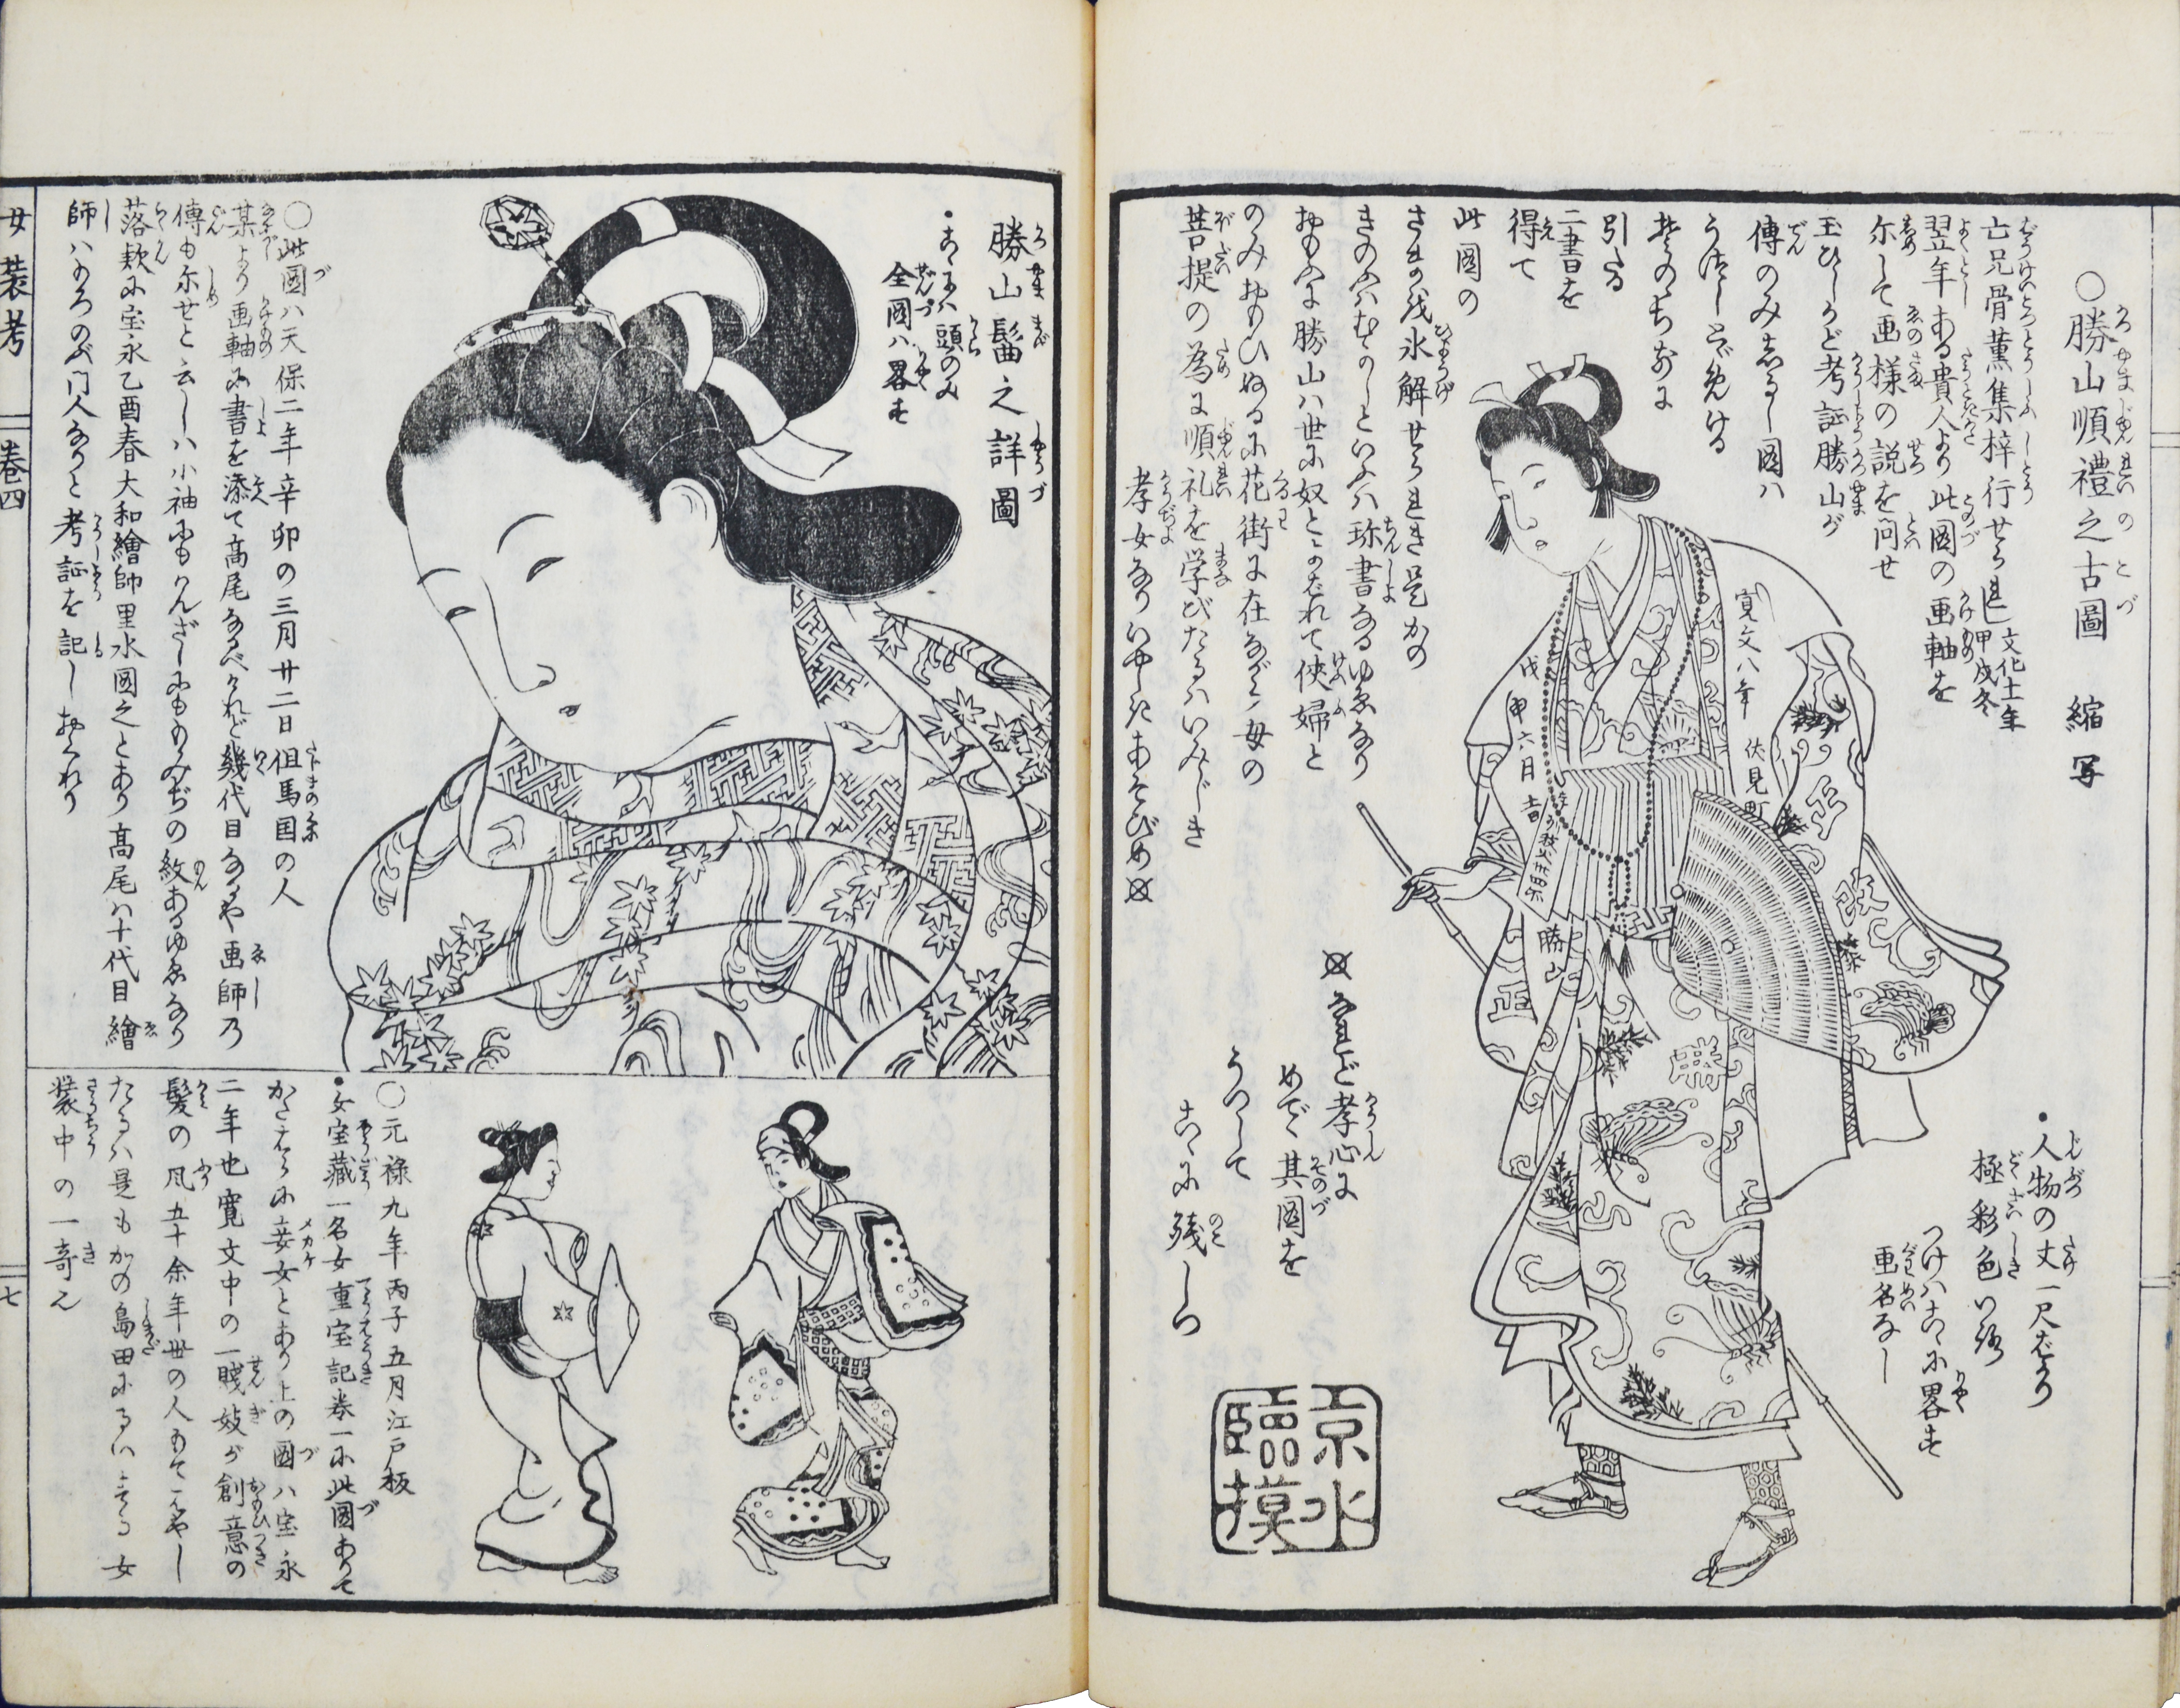 ○勝山順禮之古圖　縮写
亡兄骨董集梓行せられし文化十一年甲戌冬
翌年ある貴人より此図の画軸を
示して画様の説を問せ
玉ひしかど考証勝山が
傳のみしるし図ハ
うつしとゞめける
其のちおに
引たる
二書を
得て
此図の
さまの氷解せられき是かの
きのふハむかしといふハ珎書なるゆゑなり
おもふに勝山ハ世に奴とよばれて侠婦と
のみおもひぬるに花街に在ながら母の
菩提の為に順礼を学びたるハいみじき
孝女なりいやしきあそびめ
なれど孝心に
めで其図を
うつして
こゝに残しつ
・人物の丈一尺ばかり
極彩色いろ
つけハこゝに畧す
画名なし
寛文八年
戊申六月吉
伏見町
勝山
正
勝
京水
臨摸
勝山髷之詳圖
・こゝにハ頭のみ
全圖ハ畧す
○此図ハ天保二年辛卯の三月廿二日但馬国の人
某より画軸に書を添て高尾なるべけれど幾代目なるや画師乃
傳も示せと云しハ小袖にもかんざしにももみぢの紋あるゆゑなり
落款に宝永乙酉春大和繪師里水図之とあり高尾ハ十代目繪
師ハもろのぶ門人なりと考証を記しおくれり
○元禄九年丙子五月江戸板
・女宝蔵一名女重宝記巻一に此図ありて
かたはらに妾女とあり上の図ハ宝永
二年也寛文中の一賤妓が創意の
髪の風五十余年世の人もてはやし
たるハ是もかの島田にるいする女
装中の一奇也
女装考
巻四
七